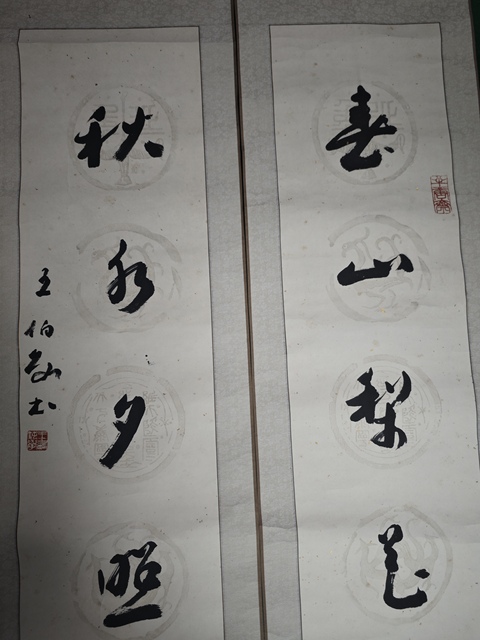 春山梨花
半唐齋
秋水夕照
王伯敏书